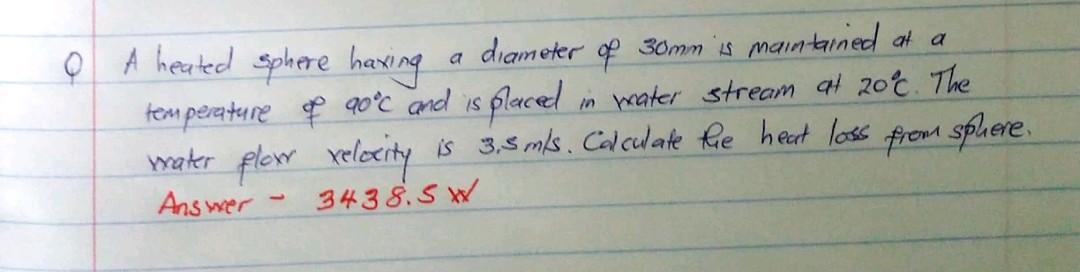 Q A heated sphere having a diameter of 30mm is maintained at a
temperature of 90°C and is placed in water stream at 20°C. The
water flow velocity is 3.5 m/s. Calculate the heat loss from sphere.
Answer - 3438.5 W